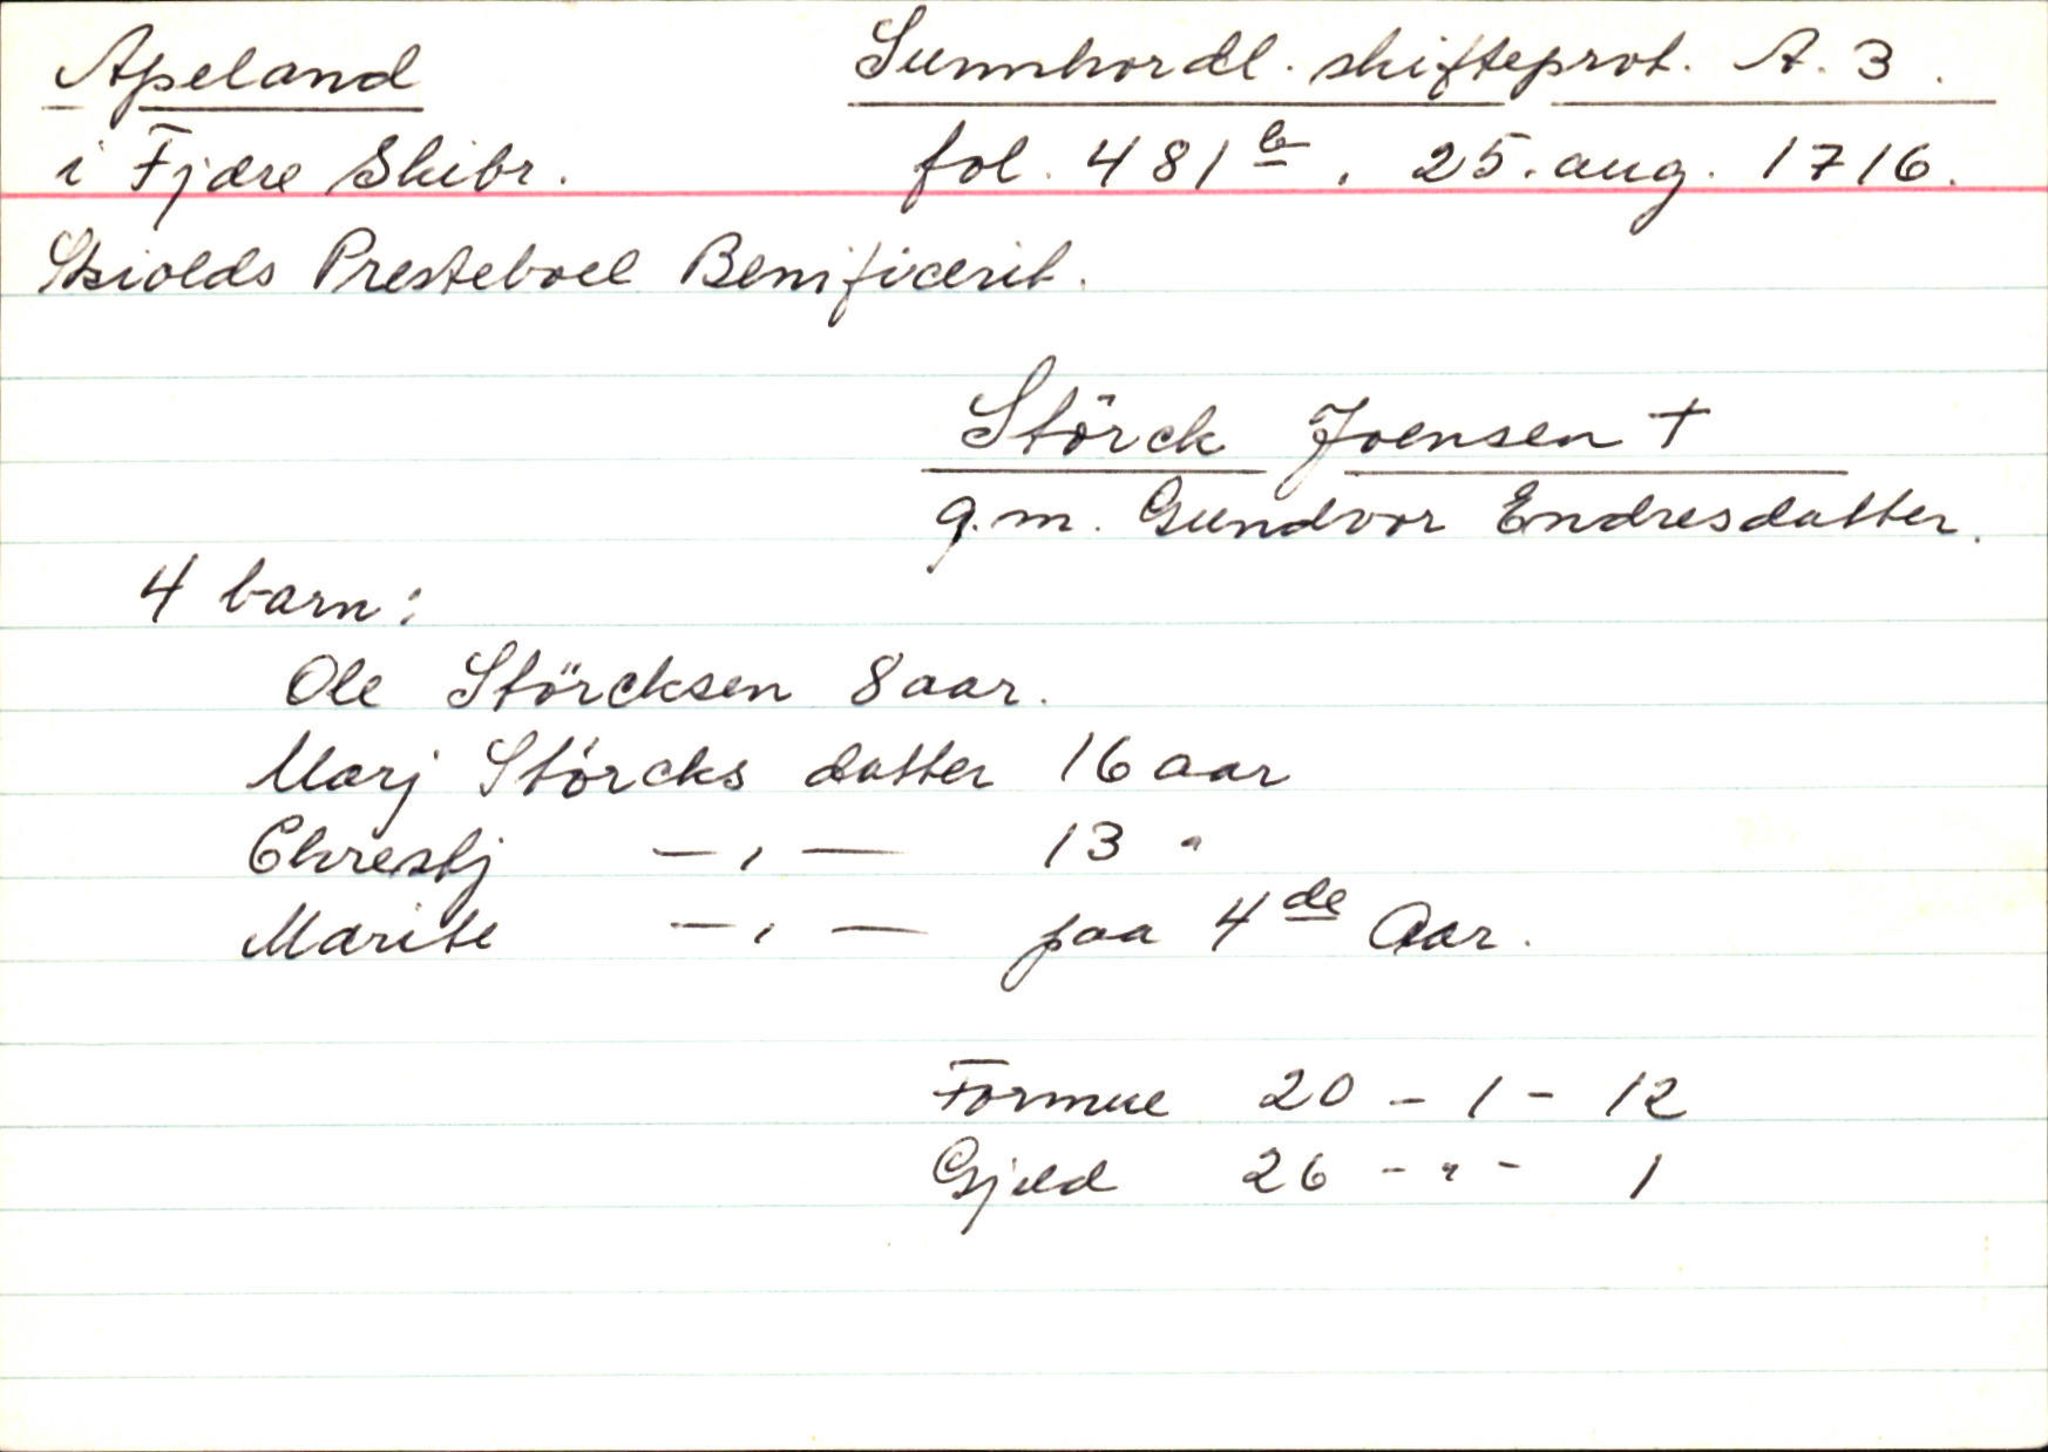 Apeland Sunnhordl. skifteprot. A. 3.
i Fjære Skibr. fol. 481 b. 25. aug. 1716.
Skiolds Presteboel Benificerit.
Störck Joensen †
g.m. Gundvor Endresdatter.
4 barn:
Ole Störcksen 8 aar.
Marj Störcks datter 16 aar
Chrestj — , — 13 "
Marite — , — paa 4de Aar.
Formue 20 - 1 - 12
Gjeld 26 - " - 1